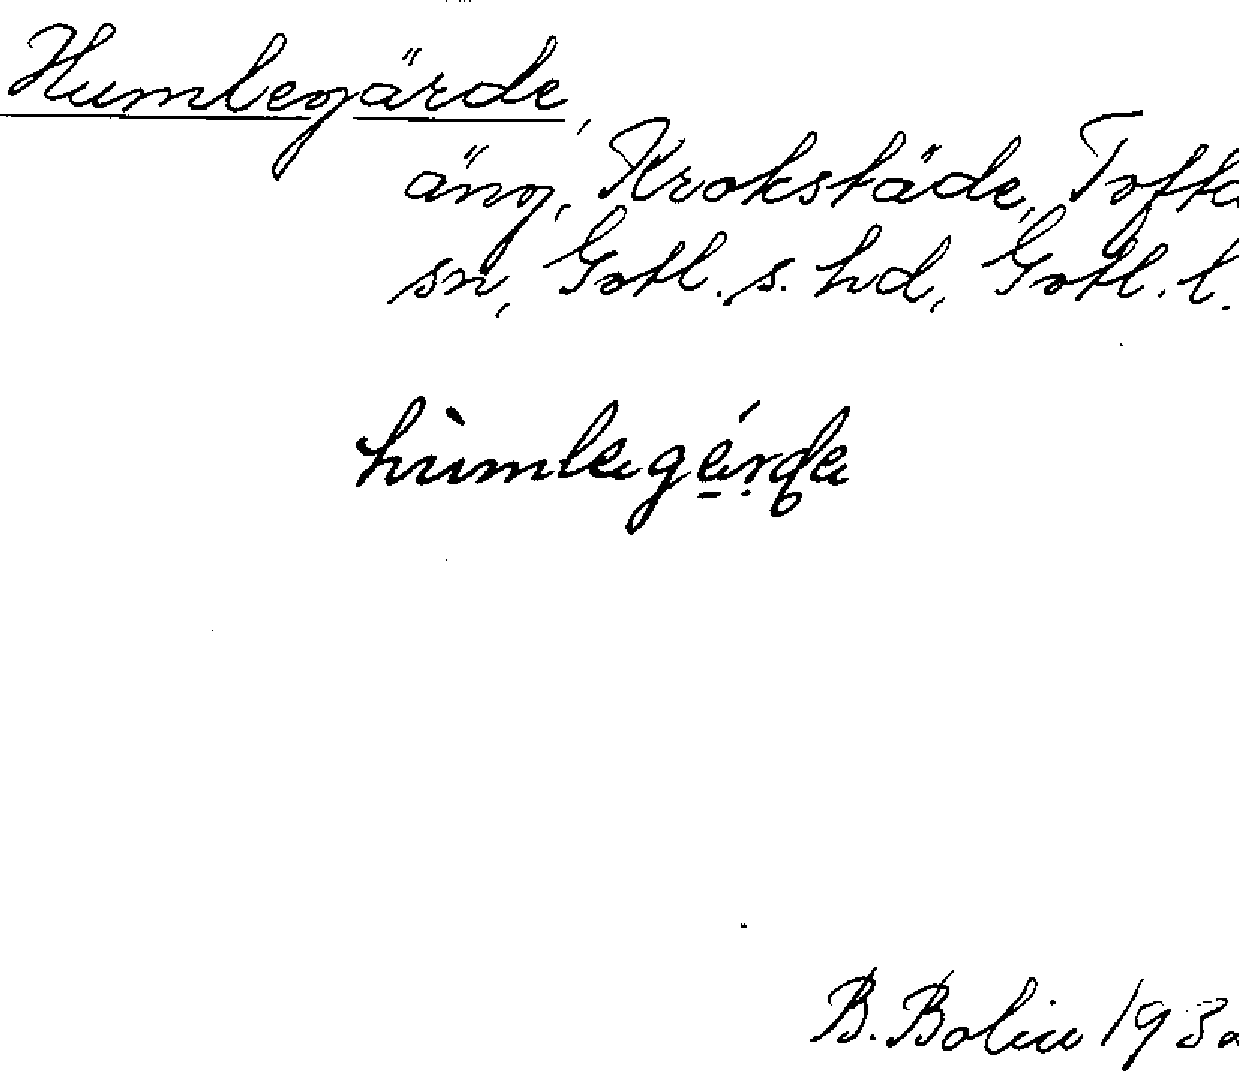 Humlegärde,
äng, Krokstäde, Tofta
sn, Gotl. s. hd, Gotl. l.
hùmlegérde
B. Bolin 1932